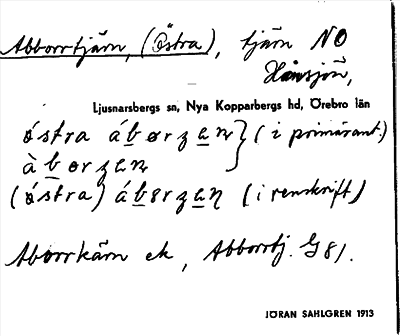 Abborrtjärn, (Östra), tjärn NO
Hånsjön,
Ljusnarsbergs sn, Nya Kopparbergs hd, Örebro län
östra ábørzan } (i primärant.)
à børzan
(östra) ábørzan (i renskrift)
Aborrkärn ek, Abborrtj. G81.
JÖRAN SAHLGREN 1913